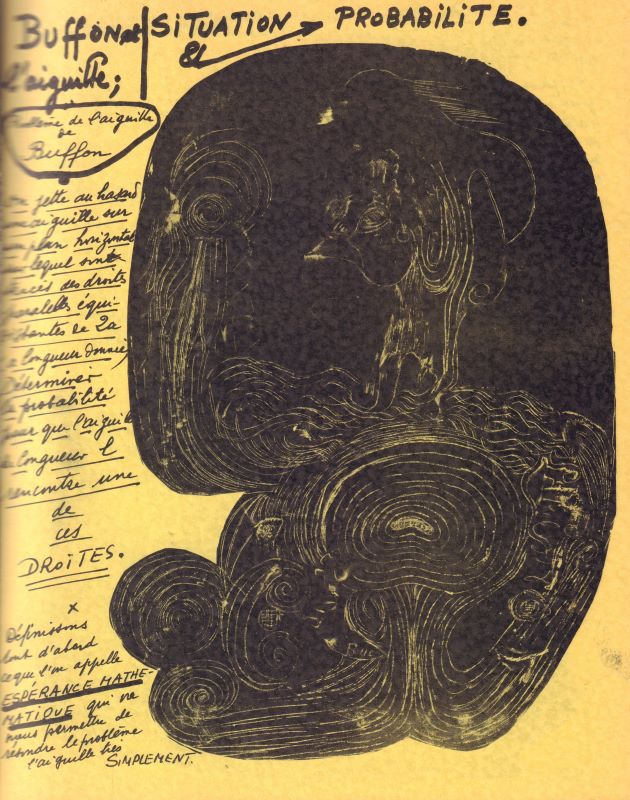 Buffon et
l'aiguille;
SITUATION
& PROBABILITE.
Problème de l'aiguille
de
Buffon
On jette au hasard
une aiguille sur
un plan horizontal
sur lequel sont
tracés des droites
parallèles équi-
distantes de 2a
de longueur donnée,
Déterminer
la probabilité
pour que l'aiguille
de longueur l
rencontre une
de
ces
DROITES.
x
Définissons
tout d'abord
ce que l'on appelle
ESPÉRANCE MATHE-
MATIQUE qui va
nous permettre de
résoudre le problème
de l'aiguille très
SIMPLEMENT.